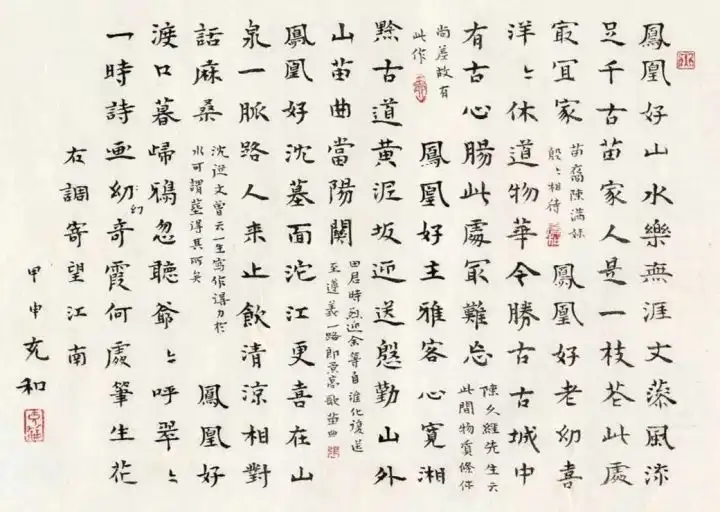 鳳凰好山水樂無涯文藻風流
足千古苗家人是一枝花此處
最宜家
苗裔陳滿妹
殷〻相待
鳳凰好老幼喜
洋〻休道物華今勝古古城中
有古心腸此處最難忘
陳久經先生云
此間物質條件
尚差故有
此作
鳳凰好主雅客心寬湘
黔古道黃泥坂迎送慇勤山外
山苗曲當陽關
田君時烈迎余等自淮化復送
至遵義一路郎景高歌苗曲
鳳凰好沈墓面沱江更喜在山
泉一脈路人来止飲清涼相對
話麻桑
沈從文曾云一生寫作得力於
水可謂墓得其所矣
鳳凰好
渡口暮歸鴉忽聽爺〻呼翠〻
一時詩画幼奇霞何處筆生花
幻
右調寄望江南
甲申充和